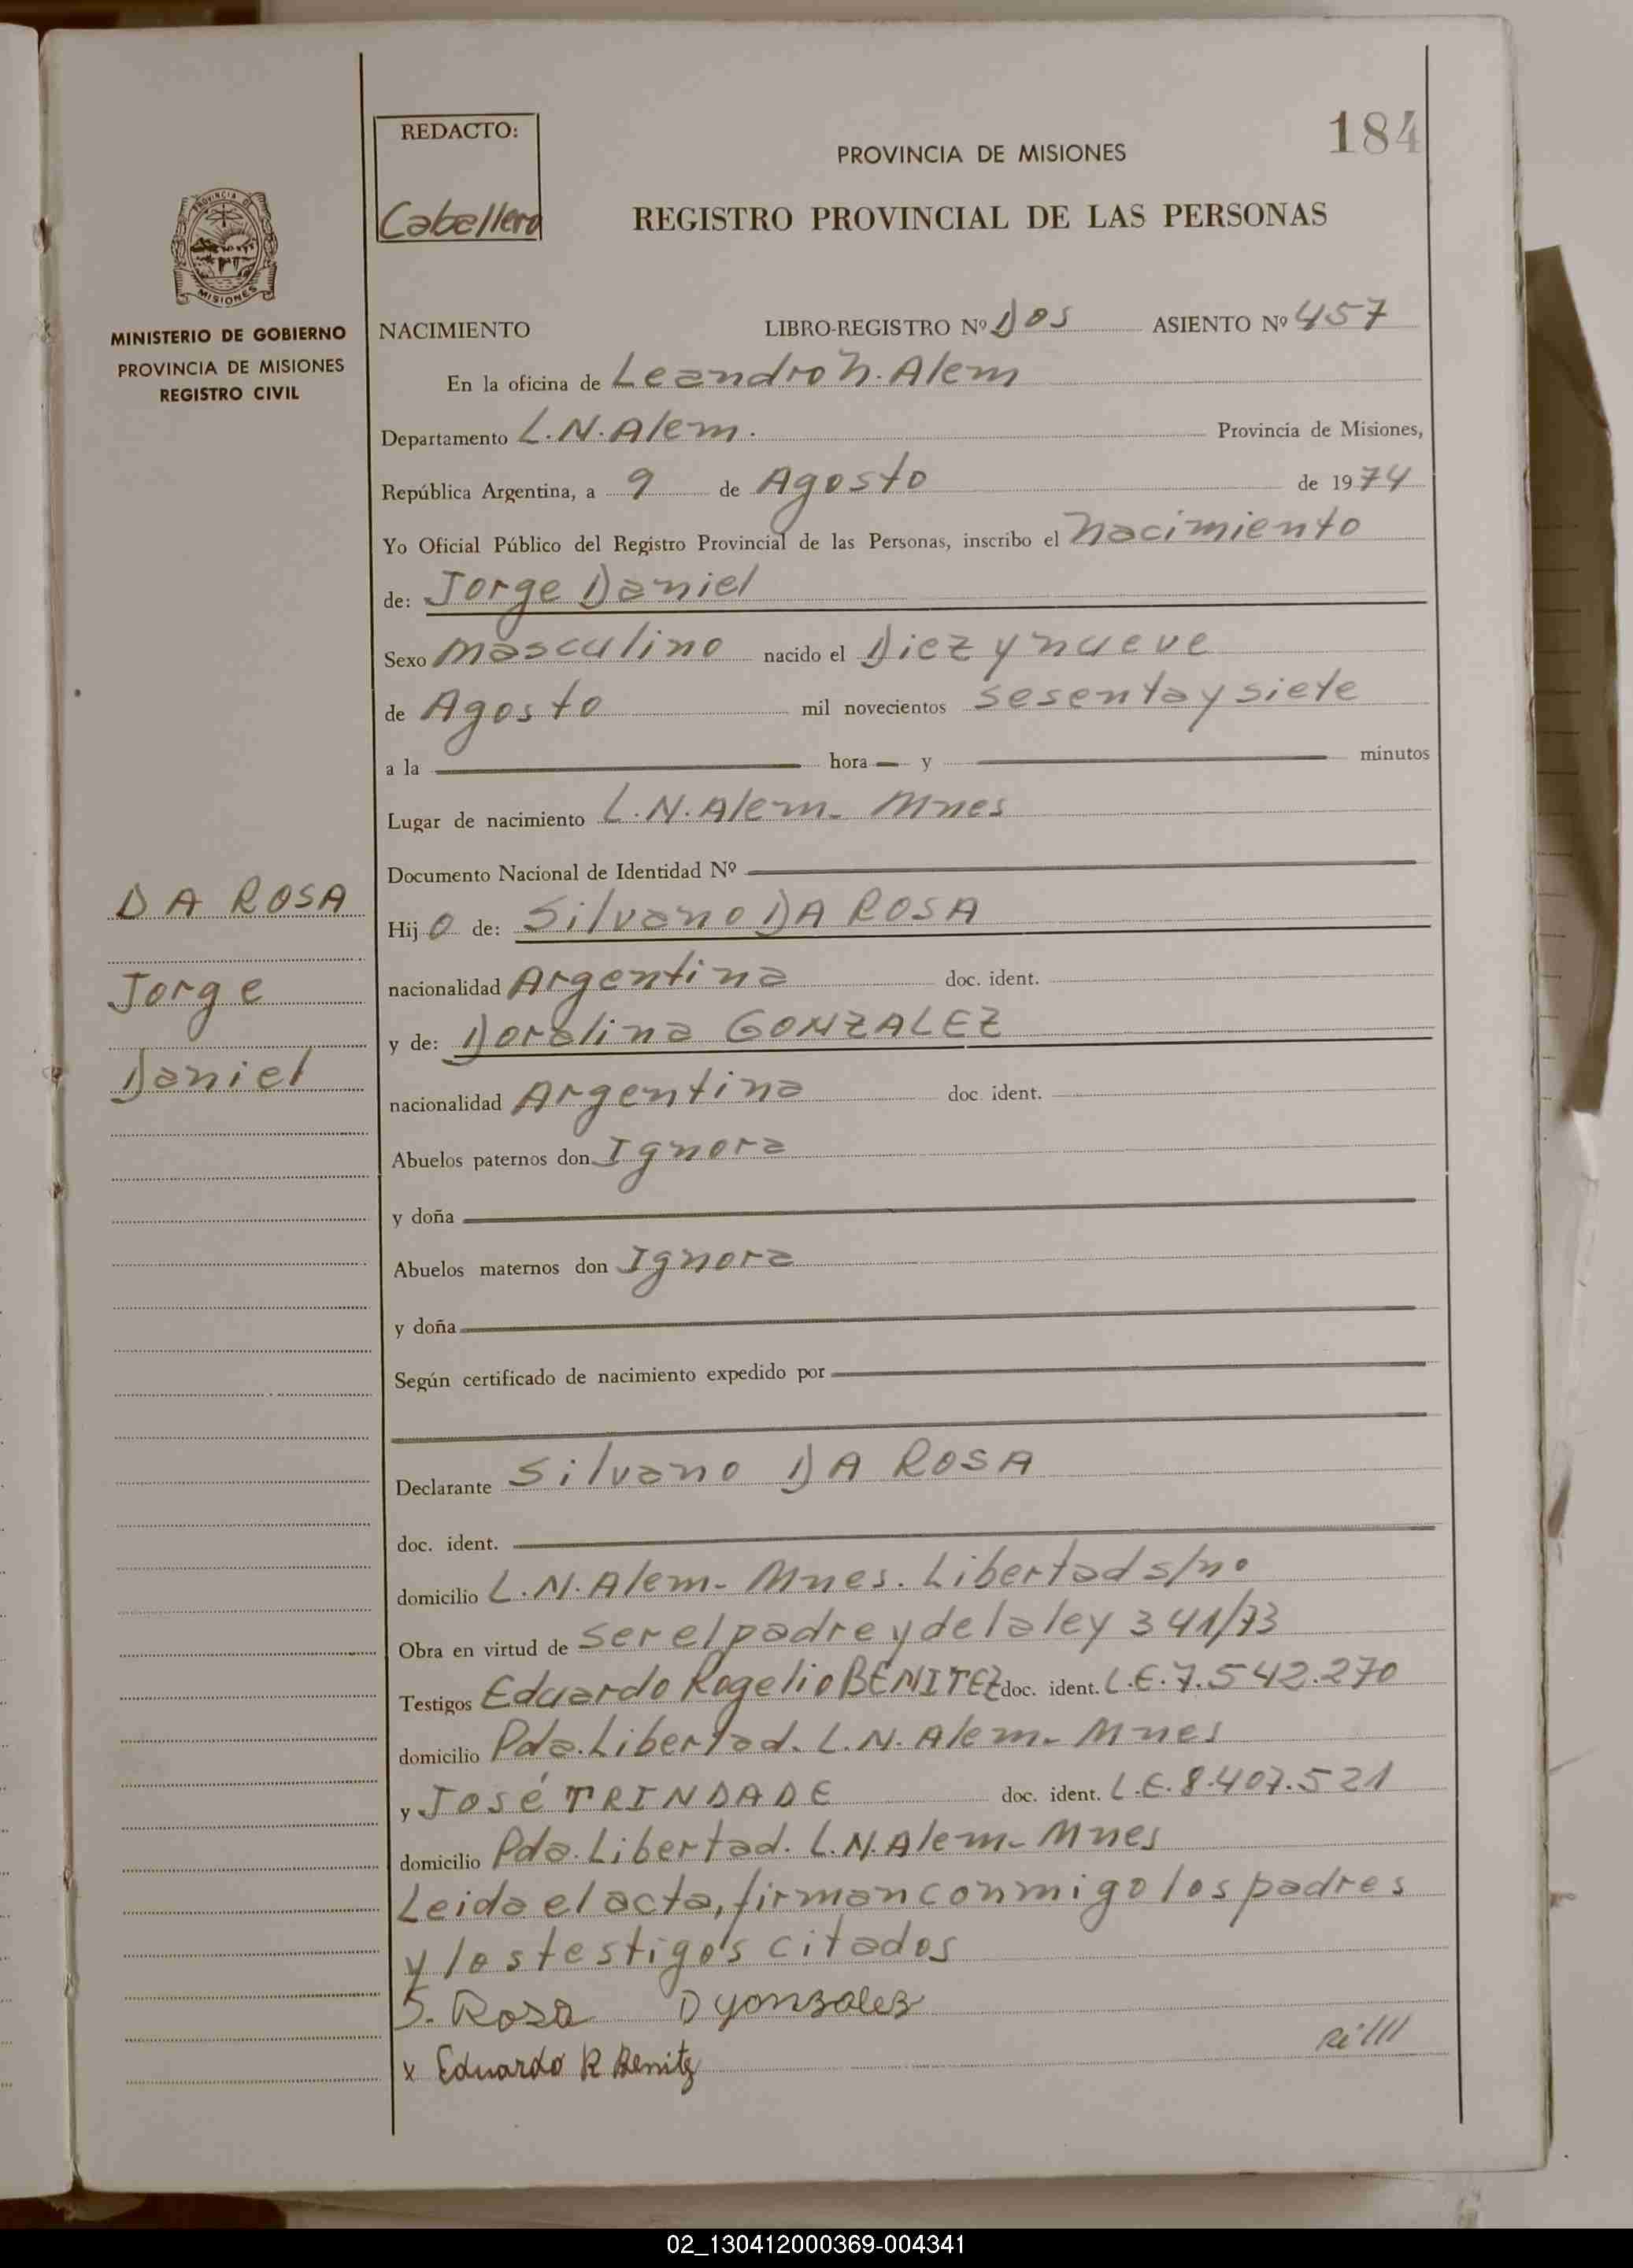 184
REDACTO:
Caballero
PROVINCIA DE MISIONES
REGISTRO PROVINCIAL DE LAS PERSONAS
PROVINCIA DE
MISIONES
MINISTERIO DE GOBIERNO
PROVINCIA DE MISIONES
REGISTRO CIVIL
NACIMIENTO LIBRO-REGISTRO Nº Dos ASIENTO Nº 457
En la oficina de Leandro N. Alem
Departamento L.N.Alem. Provincia de Misiones,
República Argentina, a 9 de Agosto de 1974
Yo Oficial Público del Registro Provincial de las Personas, inscribo el nacimiento
de: Jorge Daniel
Sexo masculino nacido el Diez y nueve
de Agosto mil novecientos sesenta y siete
a la hora y minutos
Lugar de nacimiento L.N.Alem- Mnes
Documento Nacional de Identidad Nº
DA ROSA
Jorge
Daniel
Hijo de: Silvano DA ROSA
nacionalidad Argentina doc. ident.
y de: Doralina GONZALEZ
nacionalidad Argentina doc ident.
Abuelos paternos don Ignora
y doña
Abuelos maternos don Ignora
y doña
Según certificado de nacimiento expedido por
Declarante Silvano DA ROSA
doc. ident.
domicilio L.N.Alem- Mnes. Libertad s/nº
Obra en virtud de ser el padre y de la ley 341/73
Testigos Eduardo Rogelio BENITEZ doc. ident. L.E.7.542.270
domicilio Pda. Libertad. L.N.Alem- Mnes
y José TRINDADE doc. ident. L.E.8.407.521
domicilio Pda. Libertad. L.N.Alem- Mnes
Leida el acta, firman conmigo los padres
y los testigos citados
S. Rosa D gonzalez
x Eduardo R Benitz
02_130412000369-004341